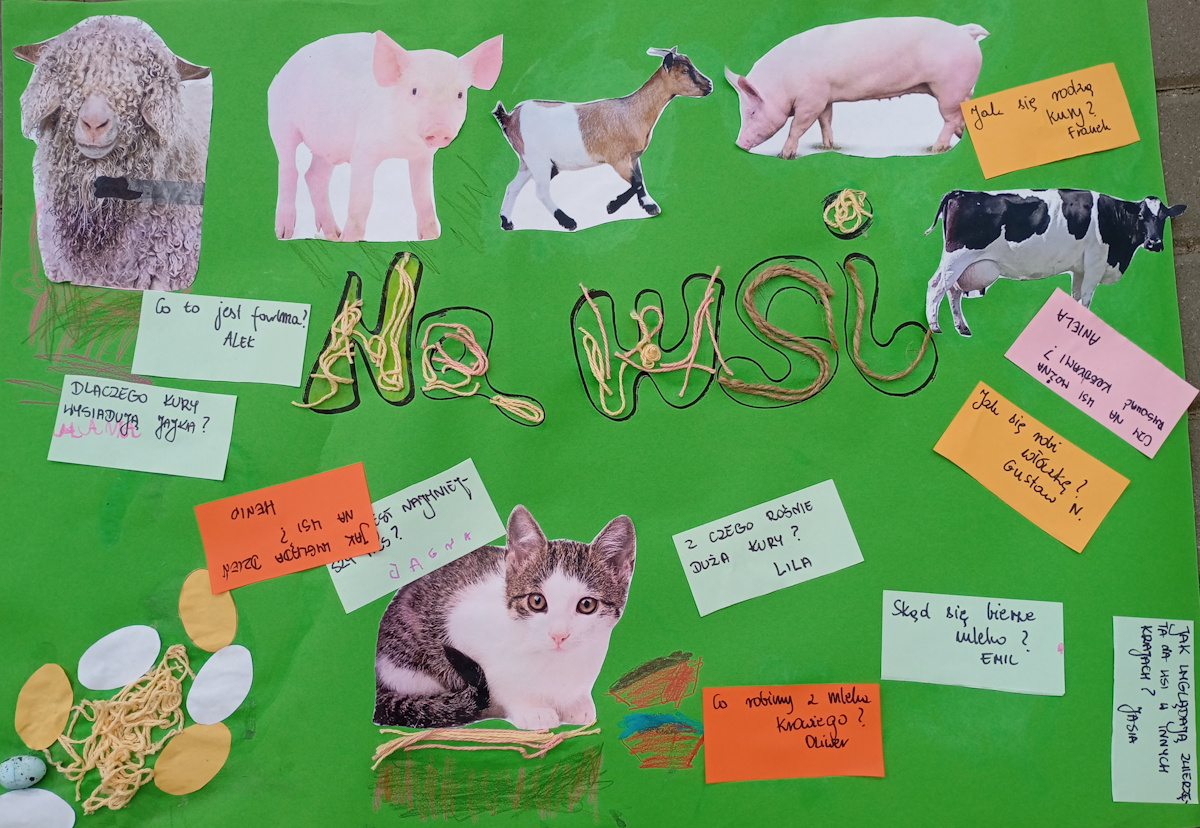 Jak się rodzą
kury?
Franek
Na wsi
Co to jest
ALEK
DLACZEGO KURY
WYSIADUJĄ JAJKA?
HANIA
CZY NA WSI MOŻNA
RYSOWAĆ KREDKAMI?
ANIELA
Jak się robi
włóczkę?
Gustaw N.
JAK WYGLĄDA DZIEŃ
NA WSI?
HENIO
EST NAJMNIEJ-
SZY
JAGNA
Z CZEGO ROŚNIE
DUŻA KURY?
LILA
Skąd się bierze
mleko?
EMIL
Co robimy z mleka
krowiego?
Oliwer
JAK WYGLĄDAJĄ ZWIERZĘ-
TA NA WSI W INNYCH
KRAJACH? JASIA